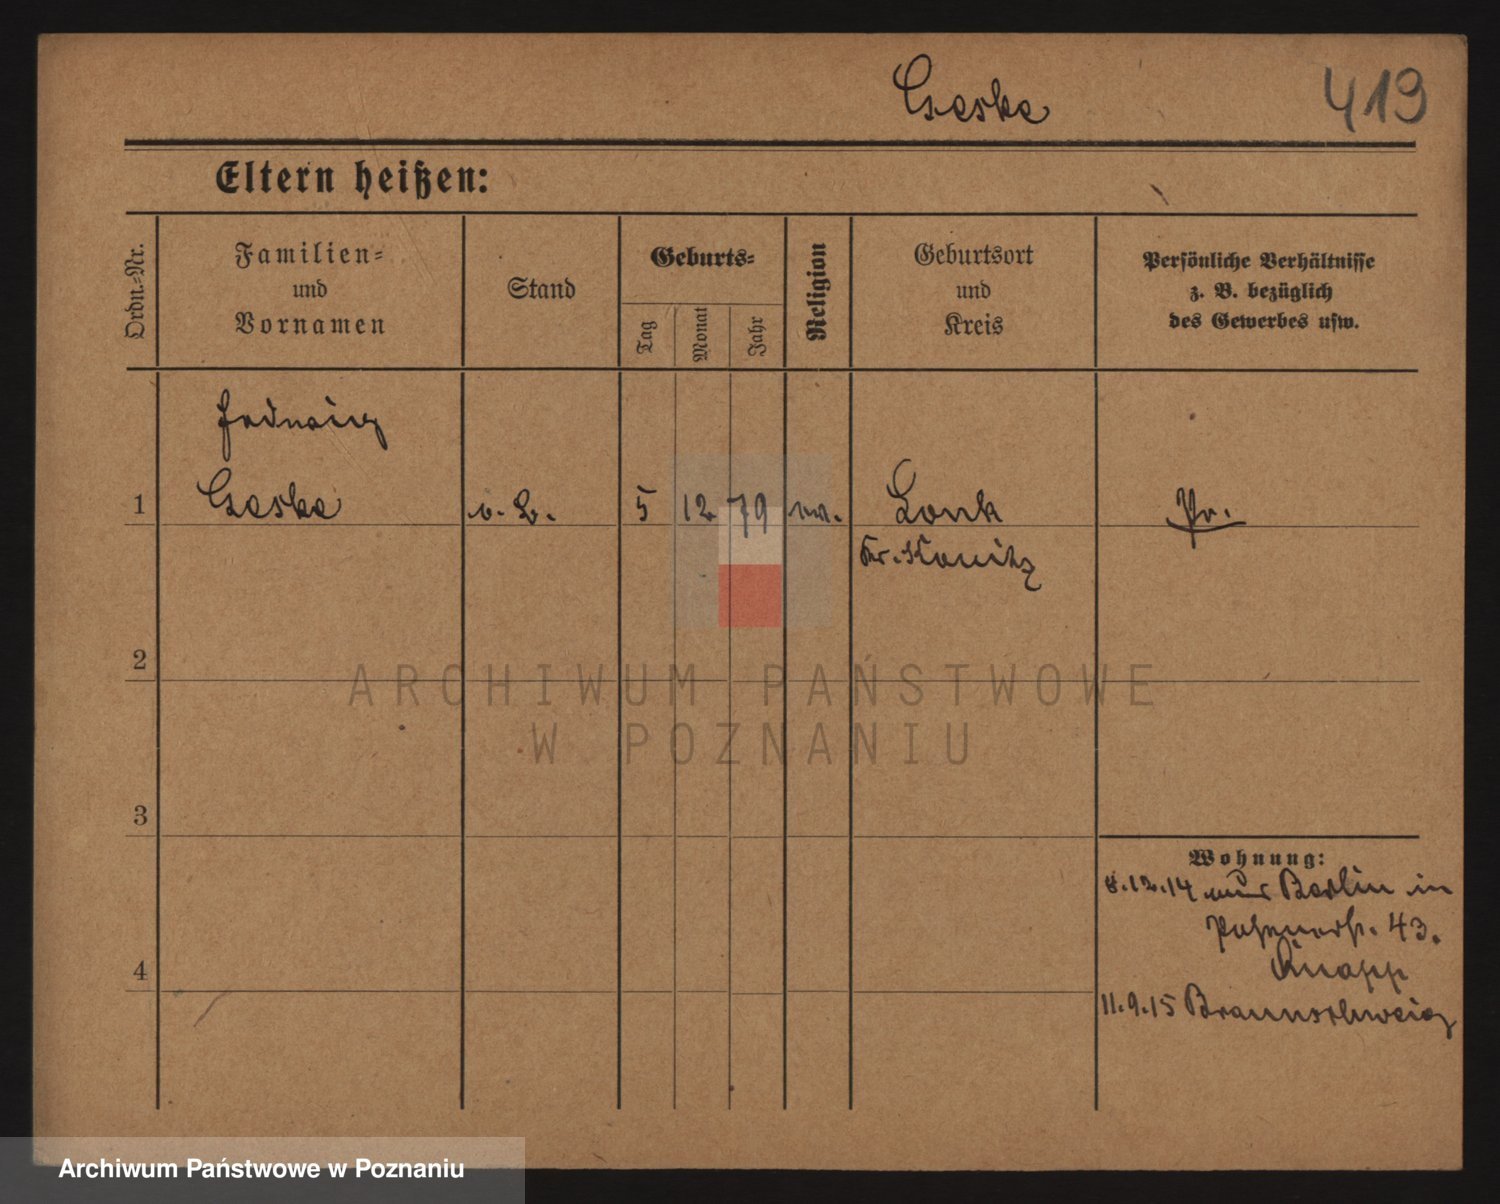 Geske 419
Eltern heißen:
Ordn.-Nr.
Familien- und Vornamen
Stand
Geburts-
Tag
Monat
Jahr
Religion
Geburtsort und Kreis
Persönliche Verhältnisse
z. B. bezüglich
des Gewerbes usw.
Hedwig
1 Geske o. B. 5 12 79 Lonk Pr.
Kr. Konitz
2
3
4
Wohnung:
8.12.14 aus Berlin in
43.
Knapp
11.9.15 Braunschweig
ARCHIWUM PAŃSTWOWE
W POZNANIU
Archiwum Państwowe w Poznaniu